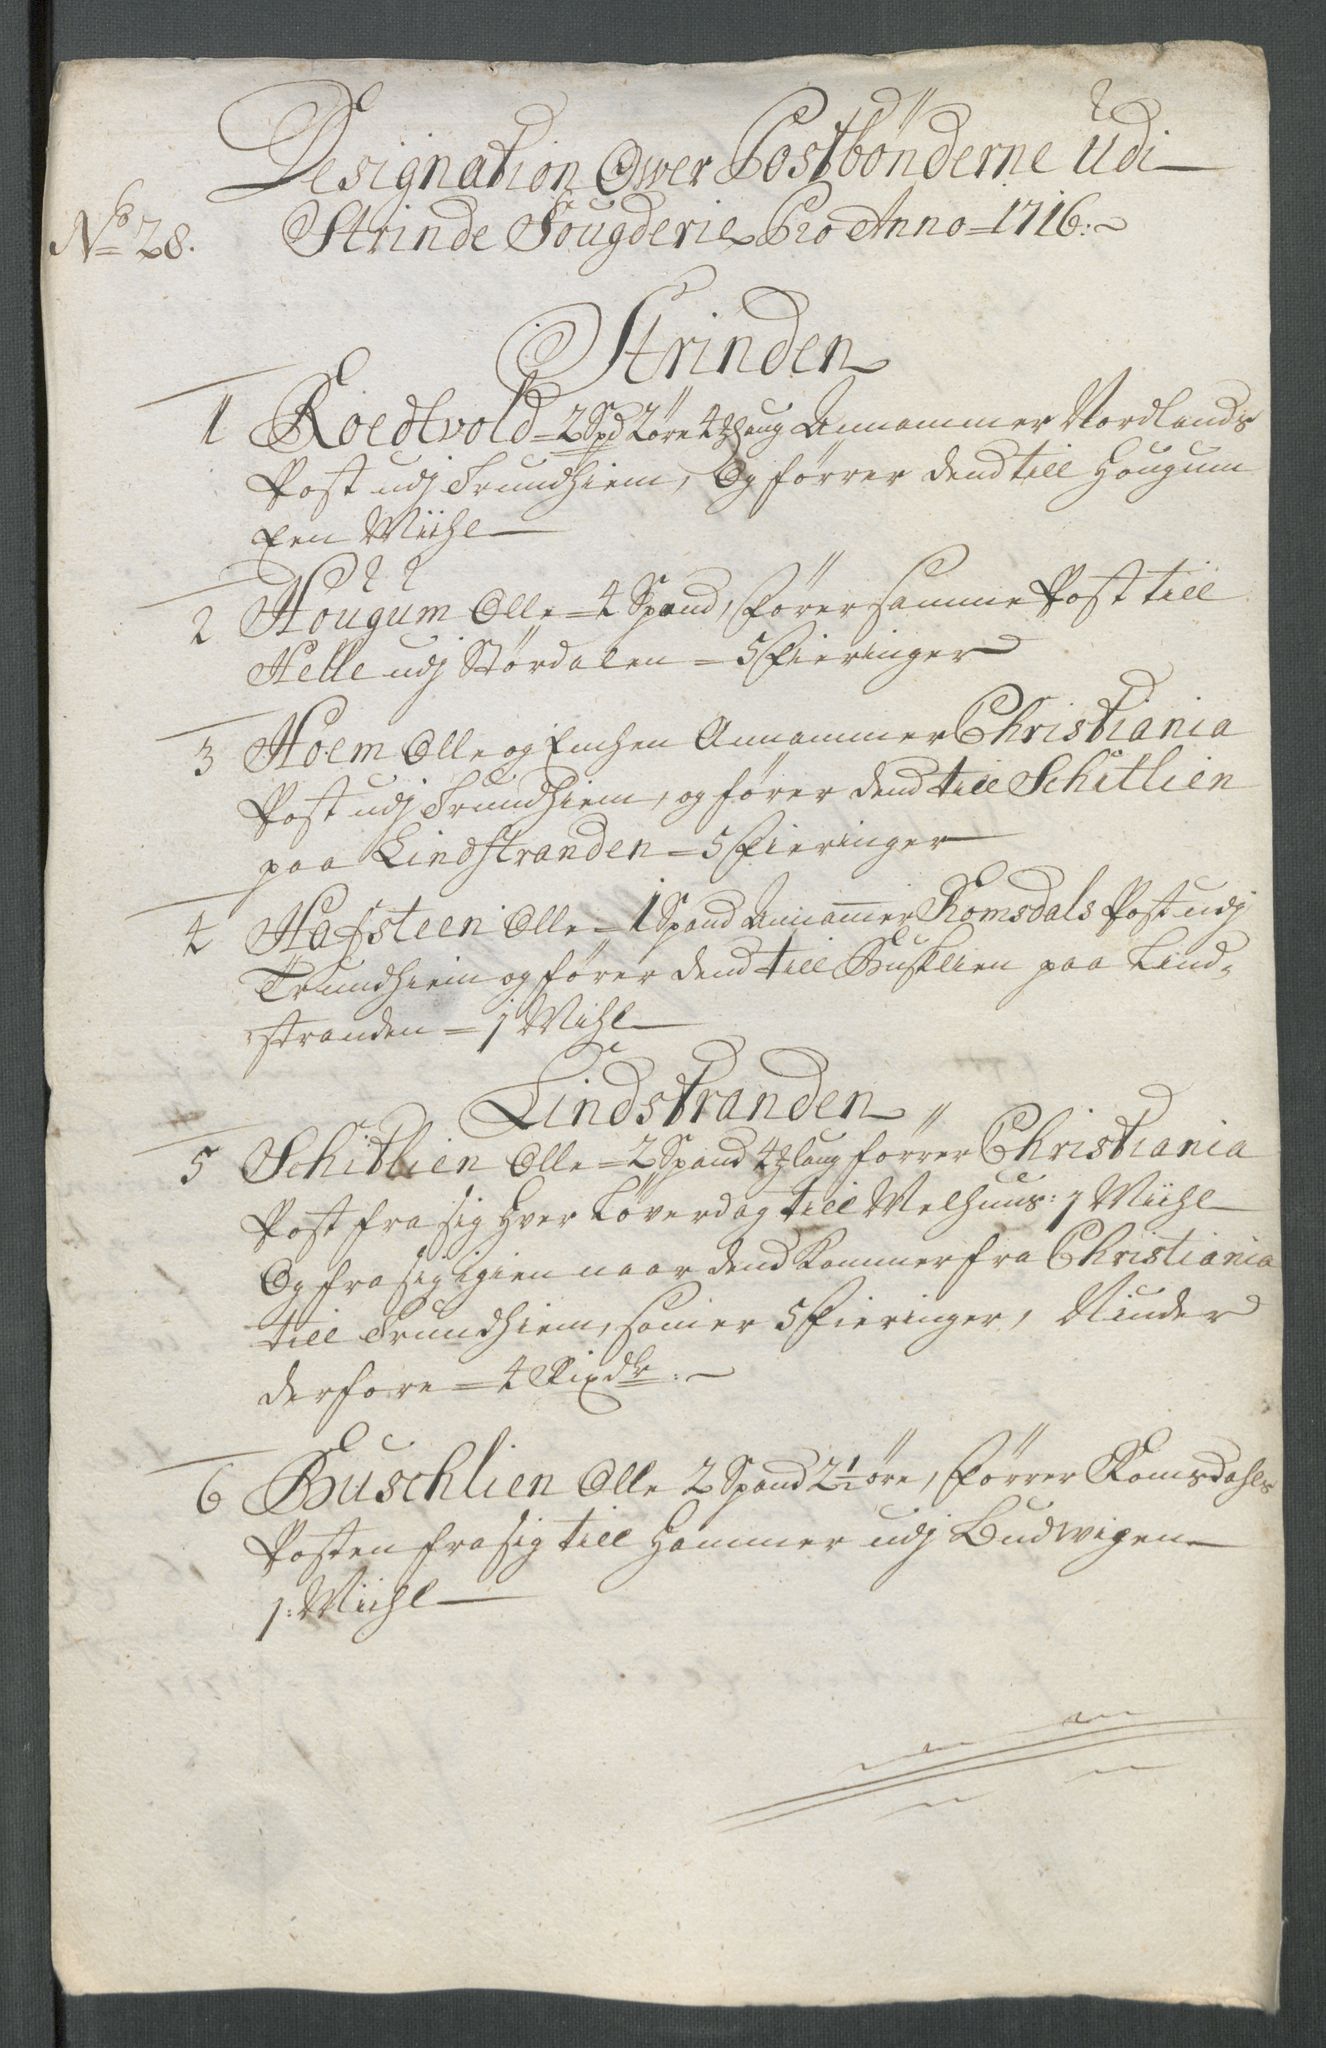 Designation Ower Postbönderne Udi
No 28. Strinde Fougderie Pro Anno = 1716:
Strinden
1 Roedtvold = 2 Spd 2 öre 4 Annammer Nordlands
Post udj Trundhiem, Og förrer dend till Hougum
Een Miihl
2 Hougum Olle = 4 Spand, förer samme Post till
Helle udj Stördalen = 5 Fieringer
3 Hoem Olle og Enchen Annammer Christiania
Post udj Trundhiem, og förer dend till Schitlien
paa Lindstranden = 5 Fieringer
4 Hafsteen Olle = 1 Spand Annamer Romsdals Post udj
Trundhiem og förer dend till Busklien paa Lind-
stranden = 1 Mihl
Lindstranden
5 Schitlien Olle = 2 Spand 4 laug förrer Christiania
Post fra sig Hver Löverdag till Melhuus: 1 Miihl
Og fra sig igien naar dend kommer fra Christiania
till Trundhiem, som er 5 Fieringer, Niuder
derfore = 4 Rixdlr:
6 Buschlien Olle 2 Spand 2 1/2 öre, förrer Romsdahls
Posten fra sig till Hammer udj Budwigen
1: Miihl